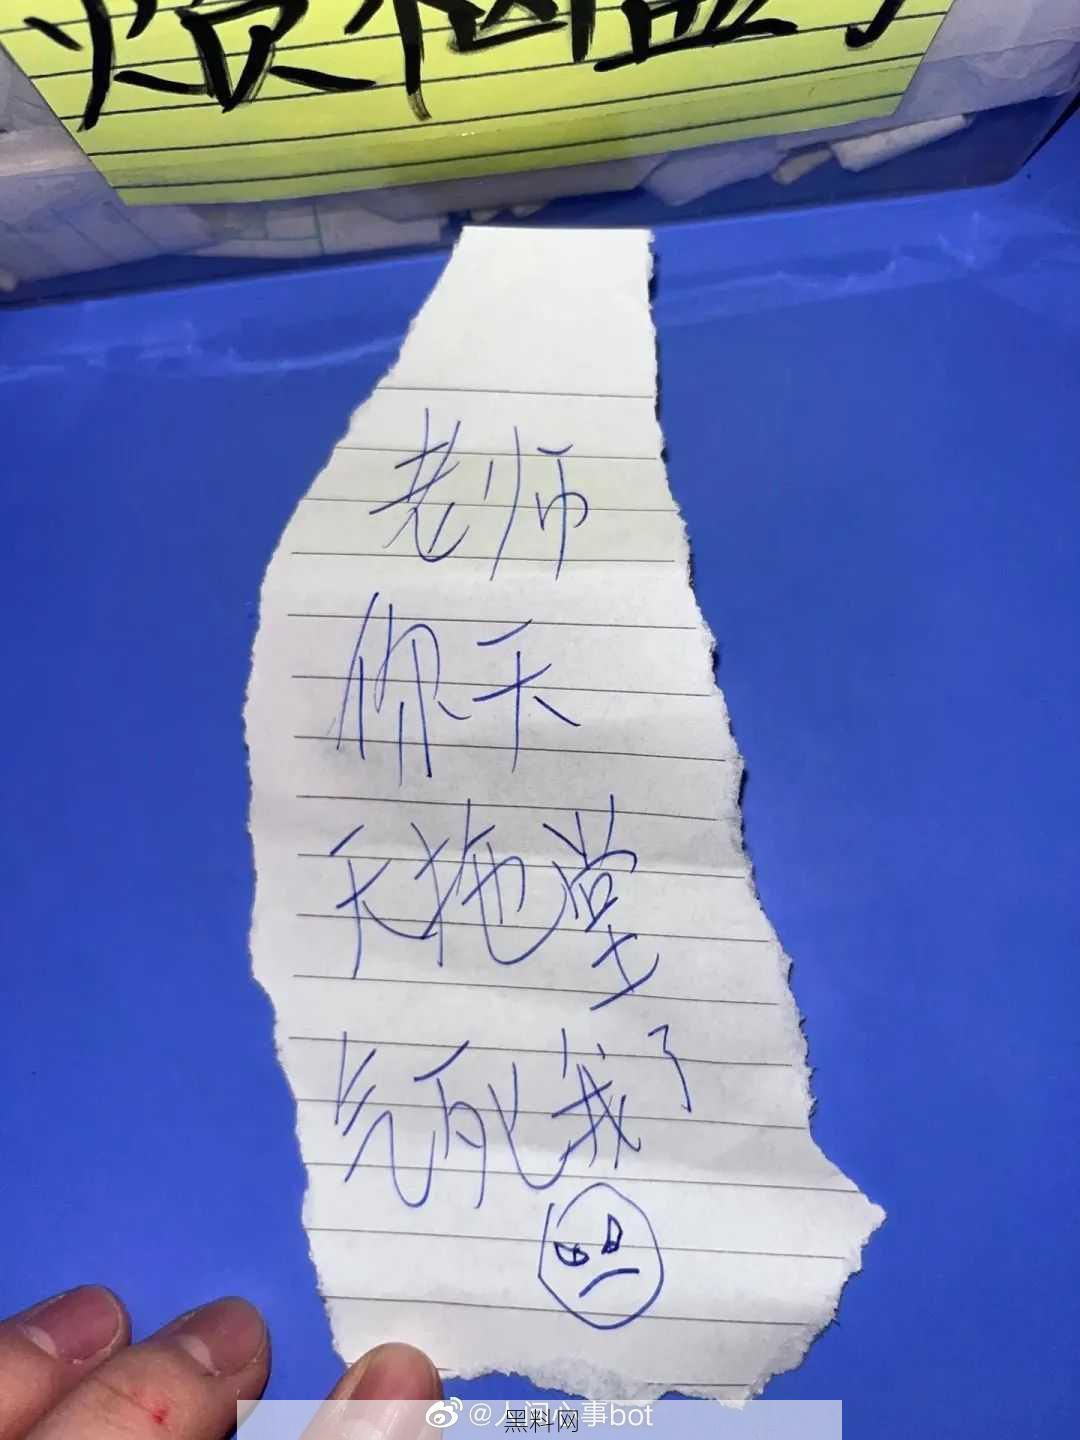 老师
你天
天拖堂
气死我了
@人间心事bot
黑料网